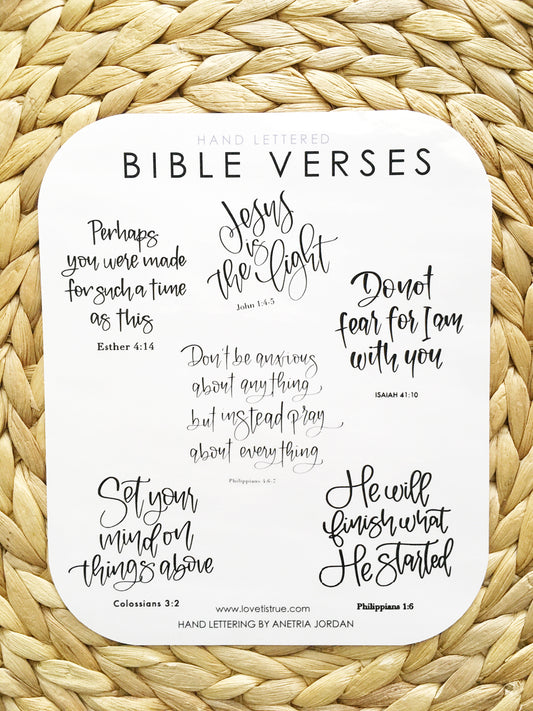 HAND LETTERED
BIBLE VERSES
Perhaps
you were made
for such a time
as this
Esther 4:14
Jesus
is
the light
John 1:4-5
Do not
fear for I am
with you
ISAIAH 41:10
Don't be anxious
about anything
but instead pray
about everything
Philippians 4:6-7
Set your
mind on
things above
Colossians 3:2
He will
finish what
He started
Philippians 1:6
www.lovetistrue.com
HAND LETTERING BY ANETRIA JORDAN